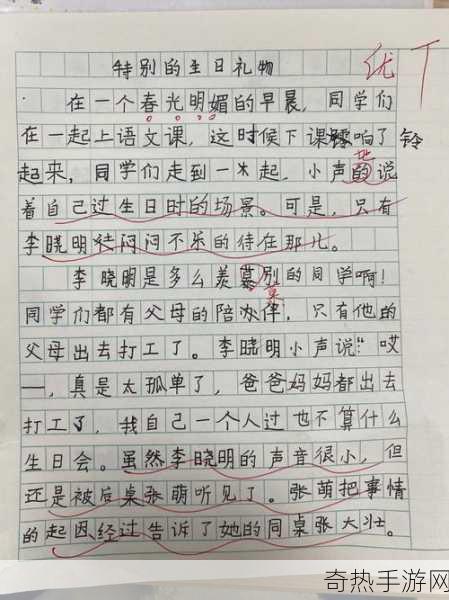 特别的生日礼物
优
在一个春光明媚的早晨，同学们
在一起上语文课，这时候下课响了铃
起来，同学们走到一起，小声的说
地
着自己过生日时的场景。可是，只有
李晓明闷闷不乐的待在那儿。
李晓明是多么羡慕别的同学啊！
慕
同学们都有父母的陪伴，只有他的
父母出去打工了。李晓明小声说：“哎
一，真是太孤单了，爸爸妈妈都出去
打工了，我自己一个人过也不算什么
生日会。虽然李晓明的声音很小，但
还是被后桌张萌听见了。张萌把事情
的起因、经过告诉了她的同桌张大壮。
奇热手游网